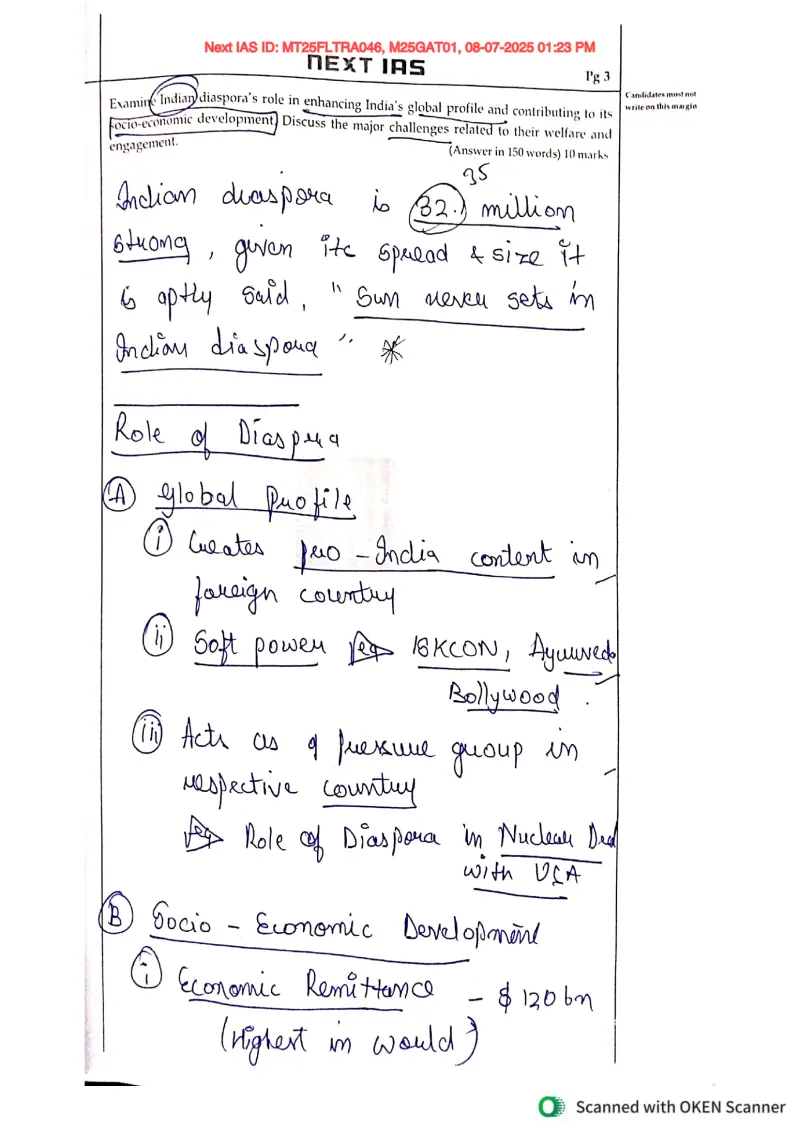 Next IAS ID: MT25FLTRA046, M25GAT01, 08-07-2025 01:23 PM
NEXT IAS
Pg 3
Candidates must not
write on this margin
Examine Indian diaspora's role in enhancing India's global profile and contributing to its
socio-economic development. Discuss the major challenges related to their welfare and
engagement.
(Answer in 150 words) 10 marks
35
Indian diaspora is 32.1 million
strong, given its spread & size it
is aptly said, "Sun never sets in
Indian diaspora"
Role of Diaspora
A Global Profile
i Creates pro-India content in
foreign country
ii Soft power eg ISKCON, Ayurveda
Bollywood.
iii Acts as a pressure group in
respective country
eg Role of Diaspora in Nuclear Deal
with USA
B Socio-Economic Development
i Economic Remittance - $ 120 bn
(Highest in would)
Scanned with OKEN Scanner